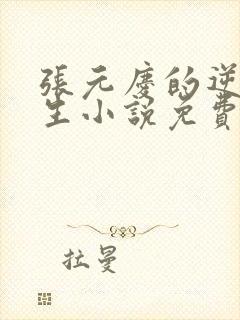 張元慶的逆
生小說免費
拉曼